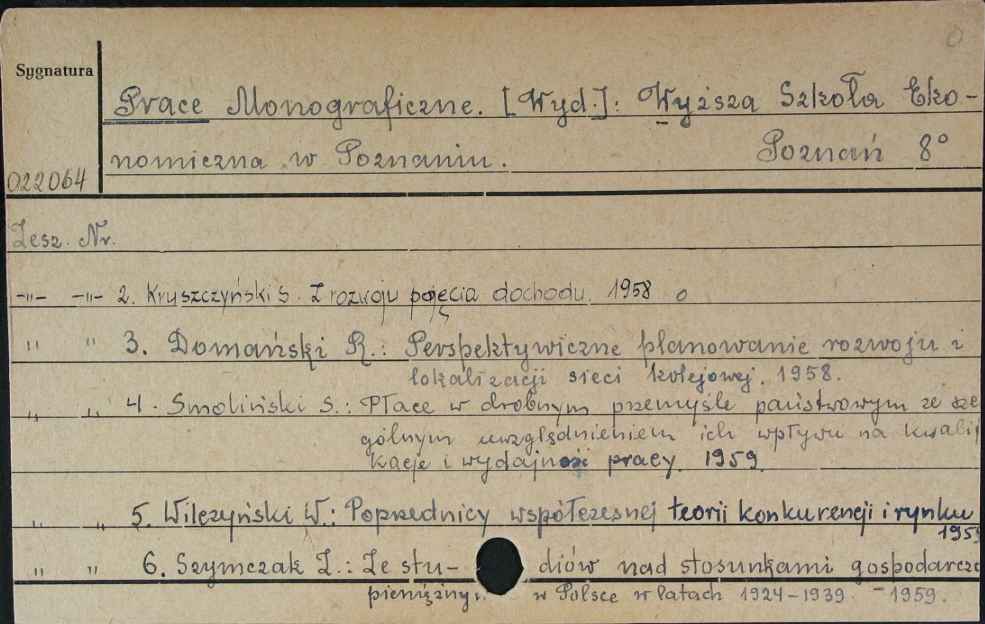 Sygnatura
Prace Monograficzne. [Wyd.]: Wyższa Szkoła Eko-
nomiczna w Poznaniu. Poznań 8°
022064
Zesz. Nr.
-"- -"- 2. Kruszczyński S. Z rozwoju pojęcia dochodu. 1958
" " 3. Domański R.: Perspektywiczne planowanie rozwoju i
lokalizacji sieci kolejowej. 1958.
" " 4. Smoliński S.: Płace w drobnym przemyśle państwowym ze szcze
gólnym uwzględnieniem ich wpływu na kwalifi
kacje i wydajność pracy. 1959.
" " 5. Wilczyński W.: Poprzednicy współczesnej teorii konkurencji i rynku
1959
" " 6. Szymczak Z.: Ze stu- diów nad stosunkami gospodarczo
pieniężnym w Polsce w latach 1924-1939. - 1959.